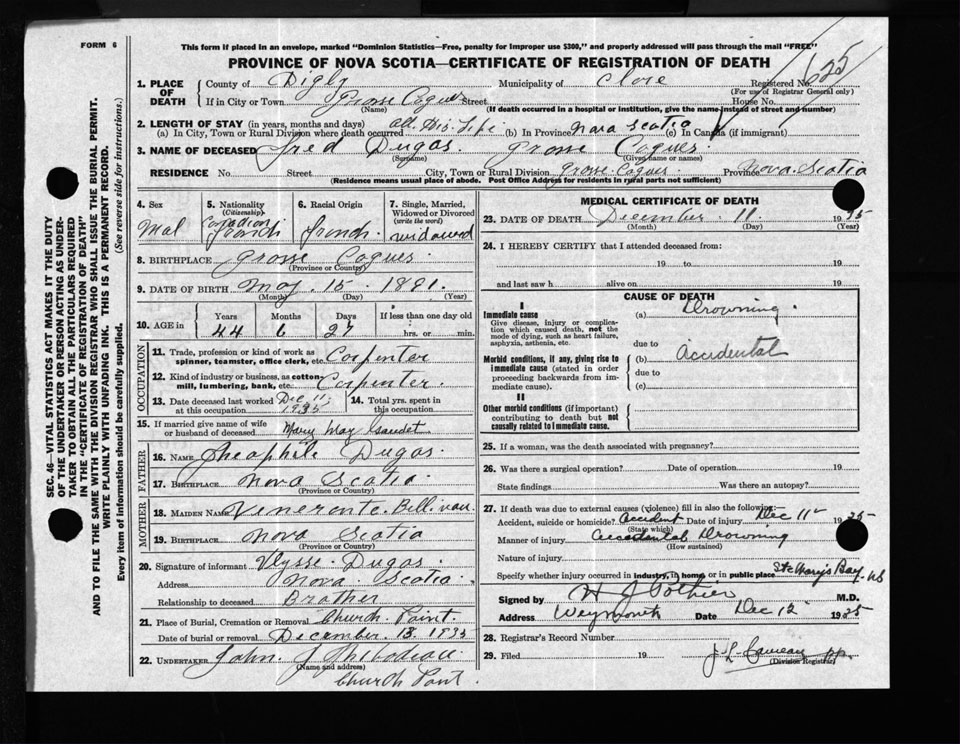 FORM 6
This form if placed in an envelope, marked "Dominion Statistics—Free, penalty for improper use $300," and properly addressed will pass through the mail "FREE"
PROVINCE OF NOVA SCOTIA—CERTIFICATE OF REGISTRATION OF DEATH
625
1. PLACE OF DEATH County of Digby Municipality of Clare Registered No.
(For use of Registrar General only)
If in City or Town Grosse Coques Street House No.
(Name) (If death occurred in a hospital or institution, give the name instead of street and number)
2. LENGTH OF STAY (in years, months and days)
(a) In City, Town or Rural Division where death occurred All His Life (b) In Province Nova Scotia (c) In Canada (if immigrant)
3. NAME OF DECEASED Fred Dugas. Grosse Coques.
(Surname) (Given name or names)
RESIDENCE No. Street City, Town or Rural Division Grosse Coques Province Nova Scotia
(Residence means usual place of abode. Post Office Address for residents in rural parts not sufficient)
4. Sex 5. Nationality (Citizenship) 6. Racial Origin 7. Single, Married, Widowed or Divorced (write the word)
Mal Canadian French French. widowed
8. BIRTHPLACE Grosse Coques.
(Province or Country)
9. DATE OF BIRTH May. 15. 1891.
(Month) (Day) (Year)
10. AGE in Years Months Days If less than one day old
44 6 27 hrs. or min.
OCCUPATION
11. Trade, profession or kind of work as spinner, teamster, office clerk, etc. Carpenter
12. Kind of industry or business, as cotton-mill, lumbering, bank, etc. Carpenter.
13. Date deceased last worked at this occupation Dec 11, 1935 14. Total yrs. spent in this occupation
15. If married give name of wife or husband of deceased Mary May Gaudet
FATHER
16. NAME Theophile Dugas.
17. BIRTHPLACE Nova Scotia
(Province or Country)
MOTHER
18. MAIDEN NAME Bellivau
19. BIRTHPLACE Nova Scotia
(Province or Country)
20. Signature of informant Ulysse Dugas.
Address Nova Scotia
Relationship to deceased Brother
21. Place of Burial, Cremation or Removal Church Point.
Date of burial or removal December. 13. 1935
22. UNDERTAKER John J Thibodeau.
(Name and address)
Church Point.
MEDICAL CERTIFICATE OF DEATH
23. DATE OF DEATH December 11. 1935
(Month) (Day) (Year)
24. I HEREBY CERTIFY that I attended deceased from:
19 to 19
and last saw h alive on 19
CAUSE OF DEATH
I
Immediate cause (a) Drowning.
Give disease, injury or complication which caused death, not the mode of dying, such as heart failure, asphyxia, asthenia, etc.
due to
Morbid conditions, if any, giving rise to immediate cause (stated in order proceeding backwards from immediate cause). (b) accidental
due to
(c)
II
Other morbid conditions (if important) contributing to death but not causally related to immediate cause.
25. If a woman, was the death associated with pregnancy?
26. Was there a surgical operation? Date of operation 19
State findings Was there an autopsy?
27. If death was due to external causes (violence) fill in also the following:—
Accident, suicide or homicide? accident Date of injury Dec 11 1935
(State which)
Manner of injury accidental Drowning
(How sustained)
Nature of injury
Specify whether injury occurred in industry, in home, or in public place St Mary's Bay NS
Signed by H J Pothier M.D.
Address Weymouth Date Dec 12 1935
28. Registrar's Record Number
29. Filed 19 J. L. Comeau
(Division Registrar)
SEC. 46—VITAL STATISTICS ACT MAKES IT THE DUTY
OF THE UNDERTAKER OR PERSON ACTING AS UNDER-
TAKER TO OBTAIN ALL THE PARTICULARS REQUIRED
IN THE "CERTIFICATE OF REGISTRATION OF DEATH"
AND TO FILE THE SAME WITH THE DIVISION REGISTRAR WHO SHALL ISSUE THE BURIAL PERMIT.
WRITE PLAINLY WITH UNFADING INK. THIS IS A PERMANENT RECORD.
Every item of information should be carefully supplied. (See reverse side for instructions.)